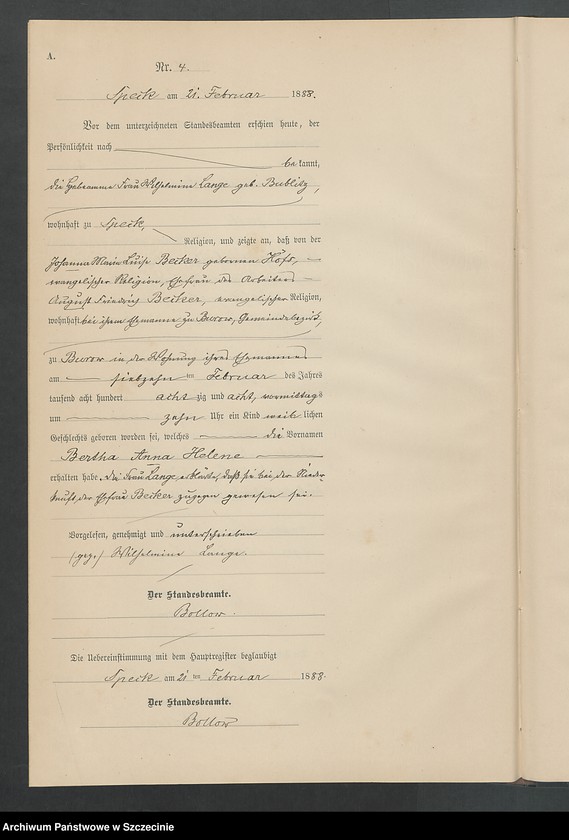 A.
Nr. 4.
Speck am 21. Februar 1888.
Vor dem unterzeichneten Standesbeamten erschien heute, der
Persönlichkeit nach
bekannt,
die Hebeamme Frau Wilhelmine Lange geb. Bublitz,
wohnhaft zu Speck,
Religion, und zeigte an, daß von der
Johanna Marie Luise Becker geborenen Höfs,
evangelischer Religion, Ehefrau des Arbeiters
August Friedrich Becker, evangelischer Religion,
wohnhaft bei ihrem Ehemanne zu Burow, Gemeindebezirk,
zu Burow in der Wohnung ihres Ehemannes
am siebzehn ten Februar des Jahres
tausend acht hundert acht zig und acht, vormittags
um zehn Uhr ein Kind weib lichen
Geschlechts geboren worden sei, welches die Vornamen
Bertha Anna Helene
erhalten habe. Die Frau Lange erklärte, daß sie bei der Nieder-
kunft der Ehefrau Becker zugegen gewesen sei.
Vorgelesen, genehmigt und unterschrieben
(gez.) Wilhelmine Lange.
Der Standesbeamte.
Bollow.
Die Uebereinstimmung mit dem Hauptregister beglaubigt
Speck am 21 ten Februar 1888.
Der Standesbeamte.
Bollow
Archiwum Państwowe w Szczecinie